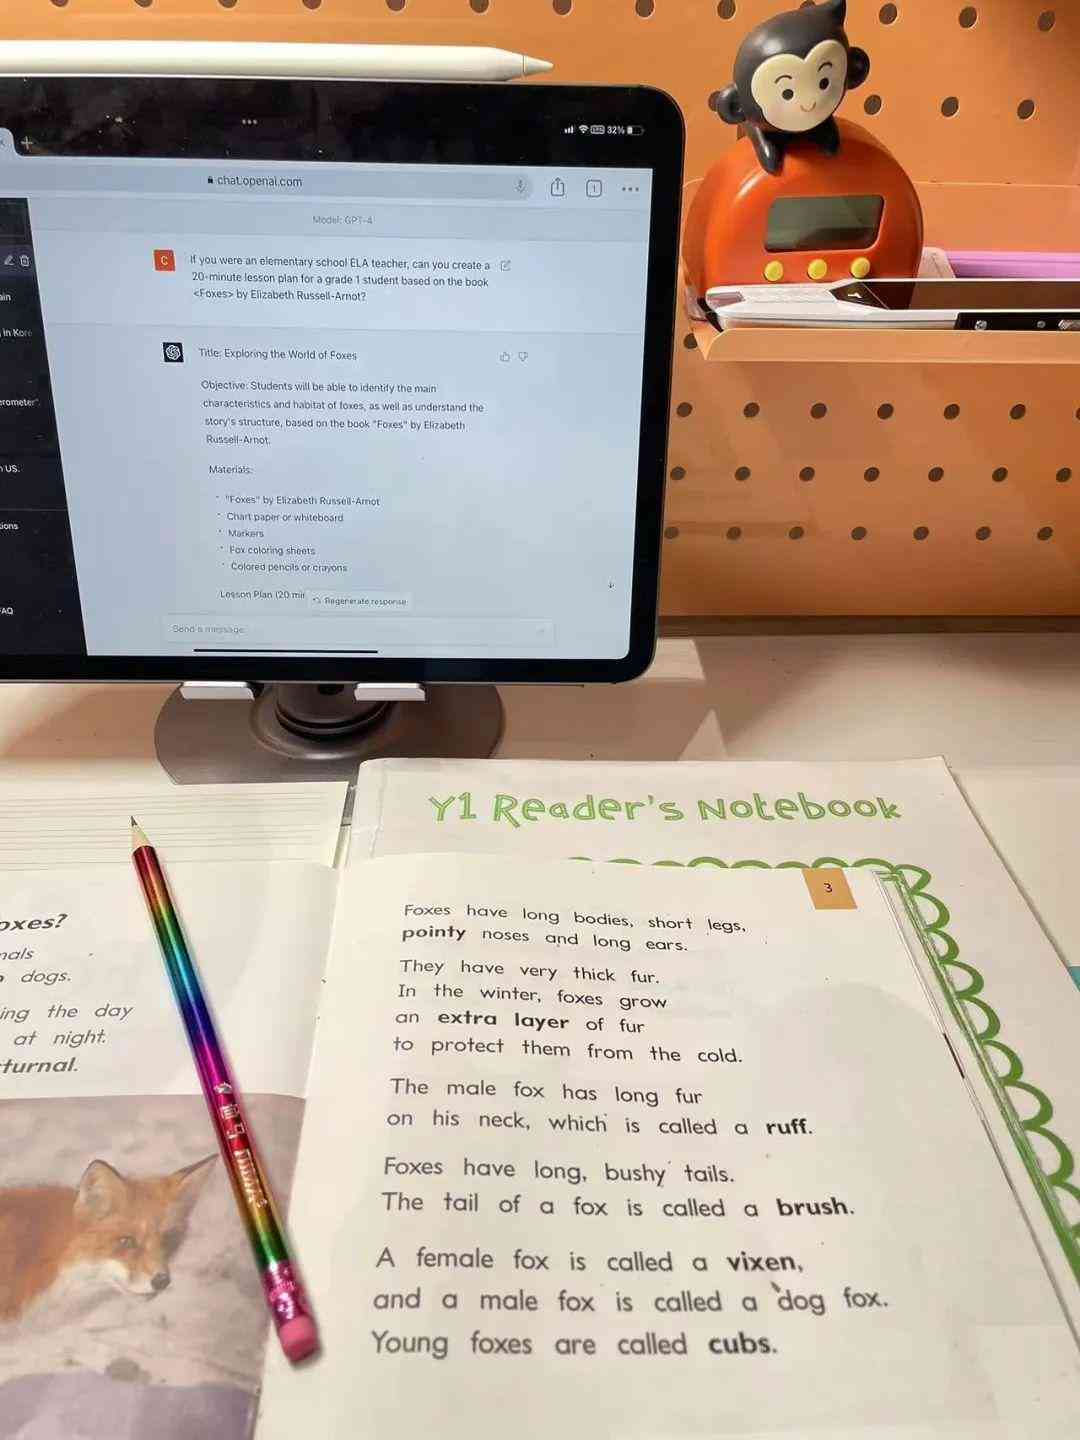 32%
chat.openai.com
1
Model: GPT-4
C
If you were an elementary school ELA teacher, can you create a
20-minute lesson plan for a grade 1 student based on the book
<Foxes> by Elizabeth Russell-Arnot?
Title: Exploring the World of Foxes
Objective: Students will be able to identify the main
characteristics and habitat of foxes, as well as understand the
story's structure, based on the book "Foxes" by Elizabeth
Russell-Arnot.
Materials:
"Foxes" by Elizabeth Russell-Arnot
Chart paper or whiteboard
Markers
Fox coloring sheets
Colored pencils or crayons
Lesson Plan (20 min
Regenerate response
Send a message
in Kore
US.
FAQ
Y1 Reader's Notebook
oxes?
nals
dogs.
ing the day
at night.
turnal.
3
Foxes have long bodies, short legs,
pointy noses and long ears.
They have very thick fur.
In the winter, foxes grow
an extra layer of fur
to protect them from the cold.
The male fox has long fur
on his neck, which is called a ruff.
Foxes have long, bushy tails.
The tail of a fox is called a brush.
A female fox is called a vixen,
and a male fox is called a dog fox.
Young foxes are called cubs.